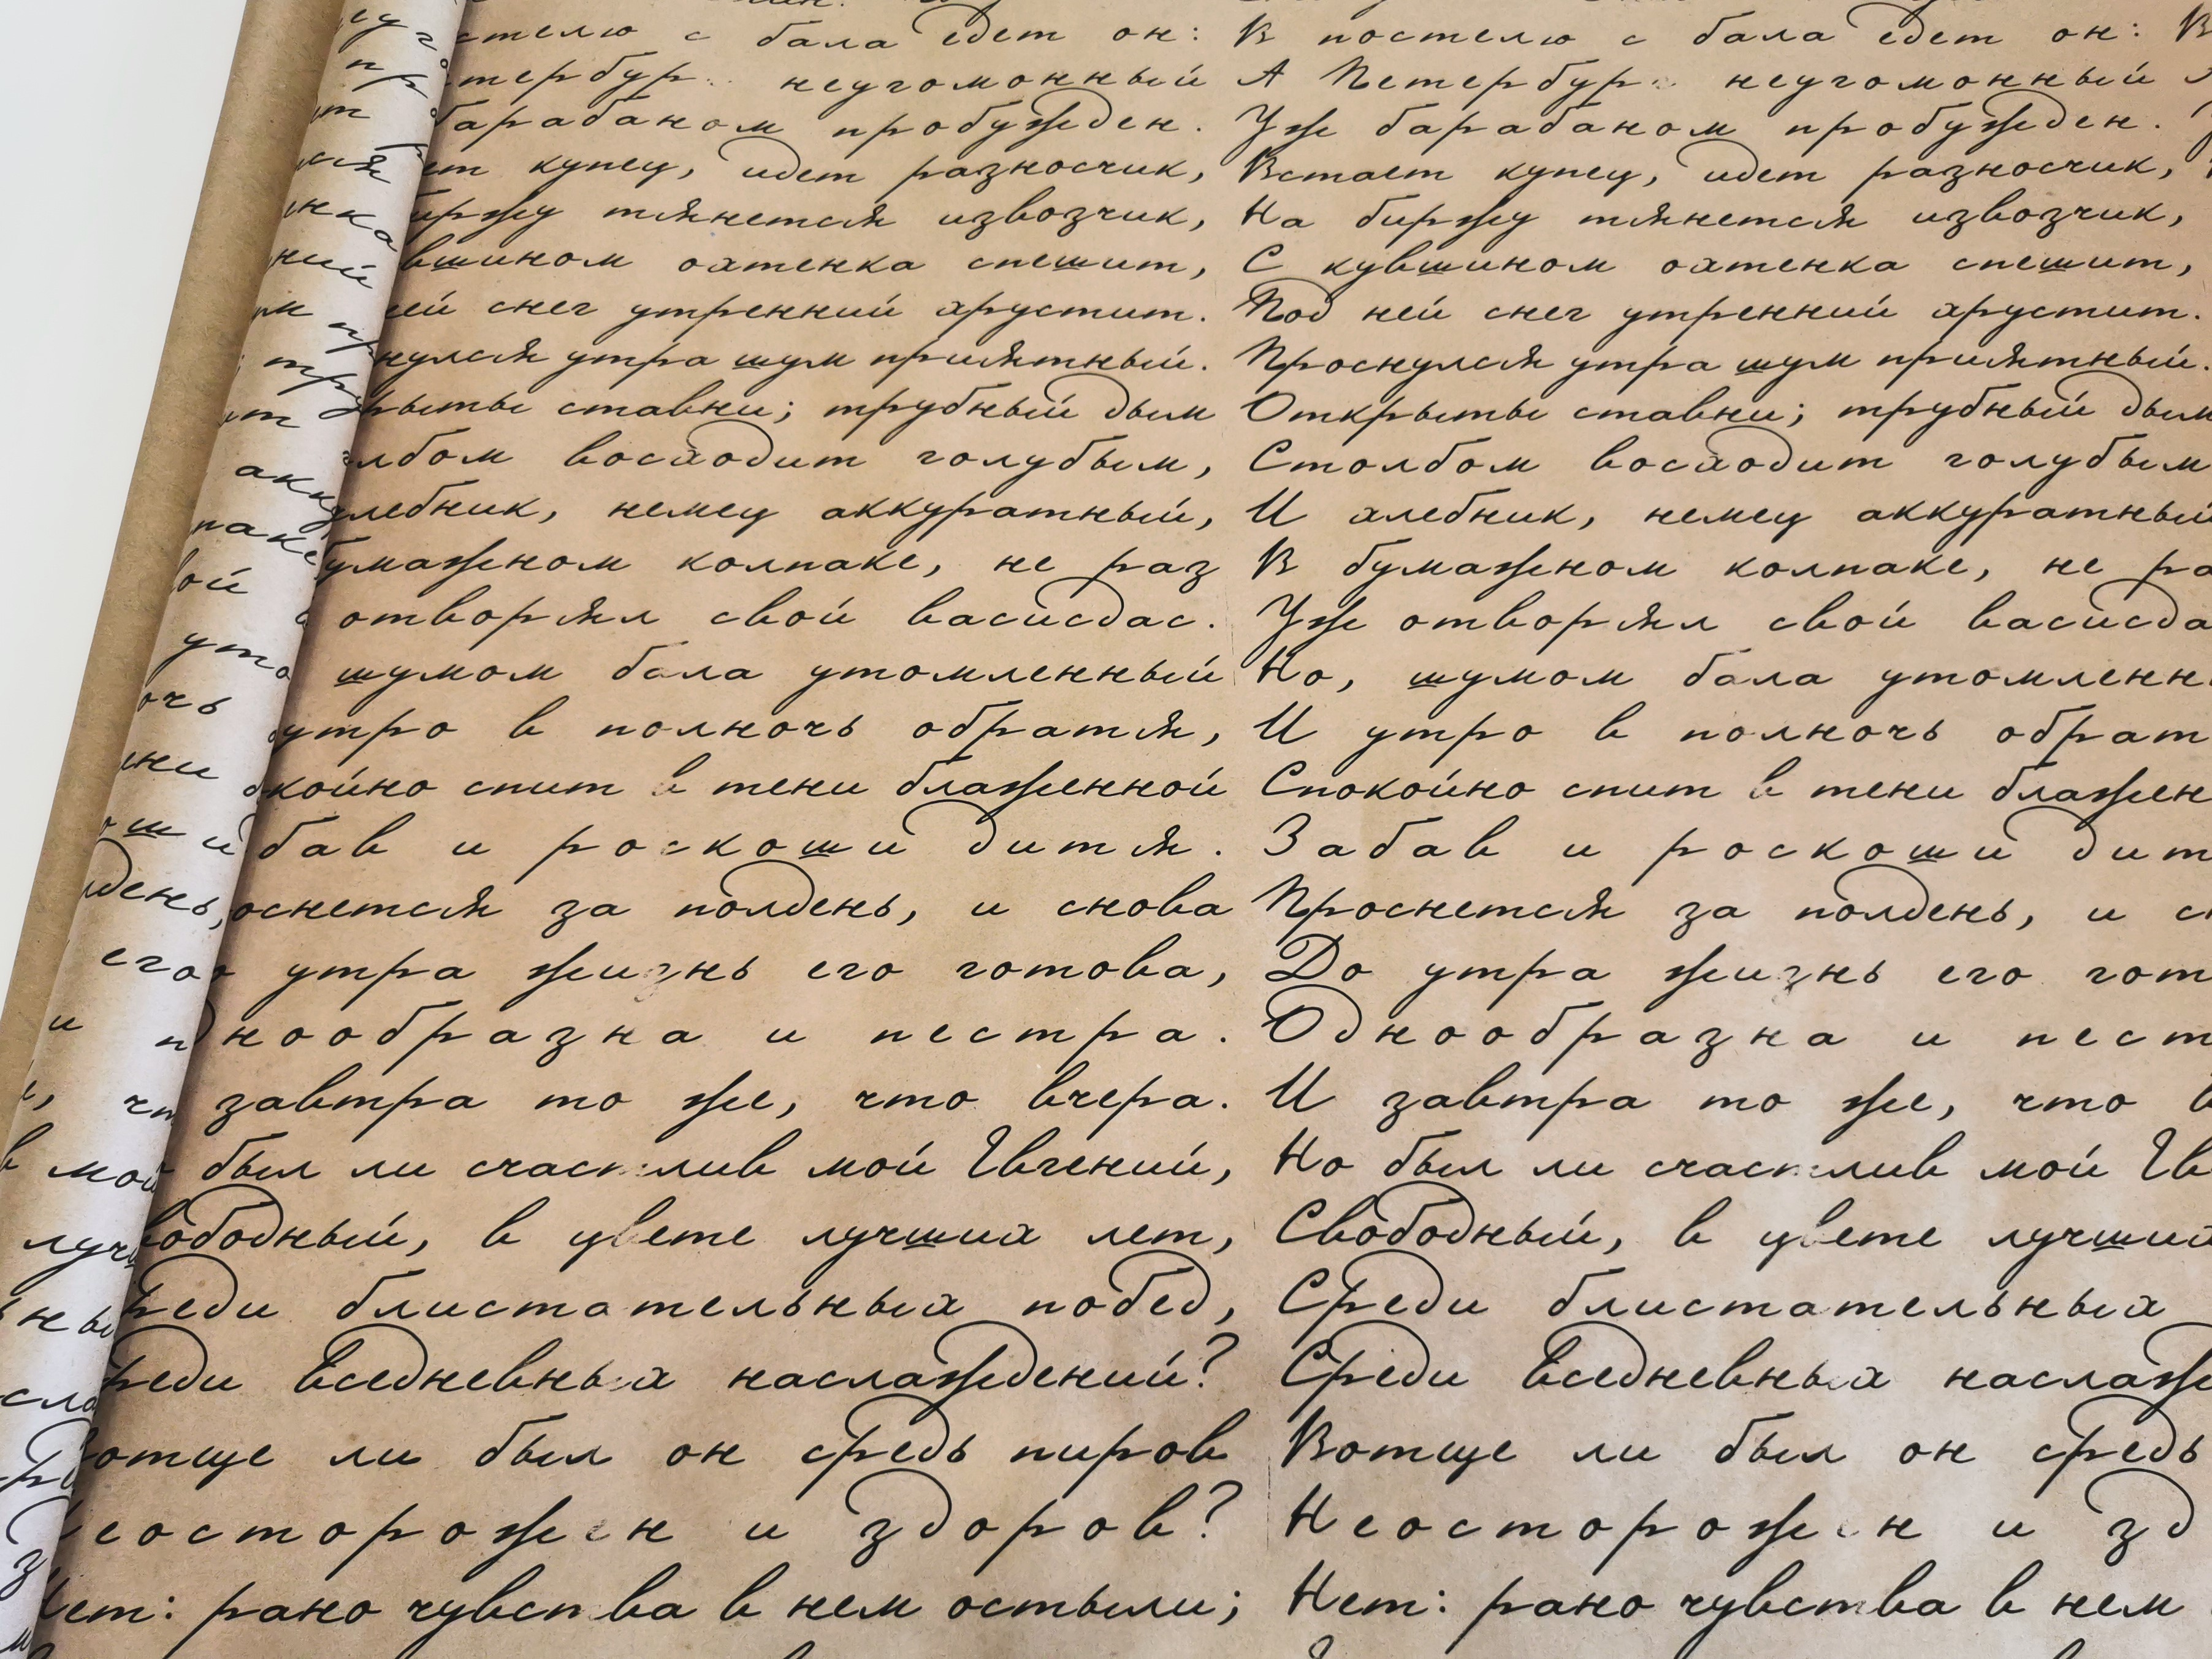 стелю с бала едет он:
тербург неугомонный
барабаном пробужден.
ет купец, идет разносчик,
иржу тянется извозчик,
вшином охтенка спешит,
ней снег утренний хрустит.
нулся утра шум приятный.
крыты ставни; трубный дым
лбом восходит голубым,
хлебник, немец аккуратный,
бумажном колпаке, не раз
отворял свой васисдас.
шумом бала утомленный
утро в полночь обратя,
окойно спит в тени блаженной
бав и роскоши дитя.
оснется за полдень, и снова
о утра жизнь его готова,
днообразна и пестра.
завтра то же, что вчера.
был ли счастлив мой Евгений,
вободный, в цвете лучших лет,
реди блистательных побед,
реди вседневных наслаждений?
отще ли был он средь пиров
еосторожен и здоров?
ет: рано чувства в нем остыли;
В постелю с бала едет он:
А Петербург неугомонный
Уж барабаном пробужден.
Встает купец, идет разносчик,
На биржу тянется извозчик,
С кувшином охтенка спешит,
Под ней снег утренний хрустит.
Проснулся утра шум приятный.
Открыты ставни; трубный дым
Столбом восходит голубым
И хлебник, немец аккуратный
В бумажном колпаке, не ра
Уж отворял свой васисда
Но, шумом бала утомленн
И утро в полночь обрат
Спокойно спит в тени блажен
Забав и роскоши дит
Проснется за полдень, и сн
До утра жизнь его гот
Однообразна и пест
И завтра то же, что в
Но был ли счастлив мой Ев
Свободный, в цвете лучших
Среди блистательных
Среди вседневных наслаж
Вотще ли был он средь
Неосторожен и зд
Нет: рано чувства в нем